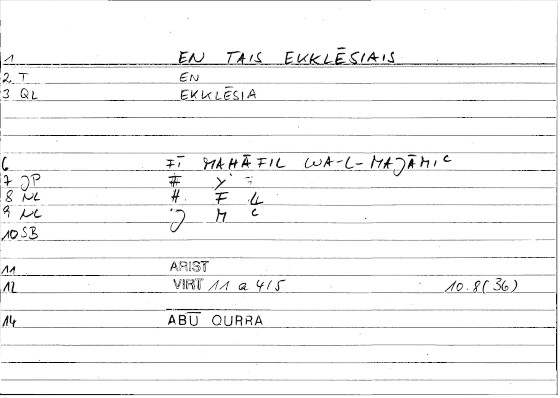 1 EN TAIS EKKLĒSIAIS
2 T EN
3 QL EKKLĒSIA
6 FĪ MAHĀFIL WA-L-MAJĀMIC
7 JP # Y
8 NL H F L
9 NL J M C
10 SB
11 ARIST
12 VIRT 11 a 4/5 10.8(36)
14 ABŪ QURRA